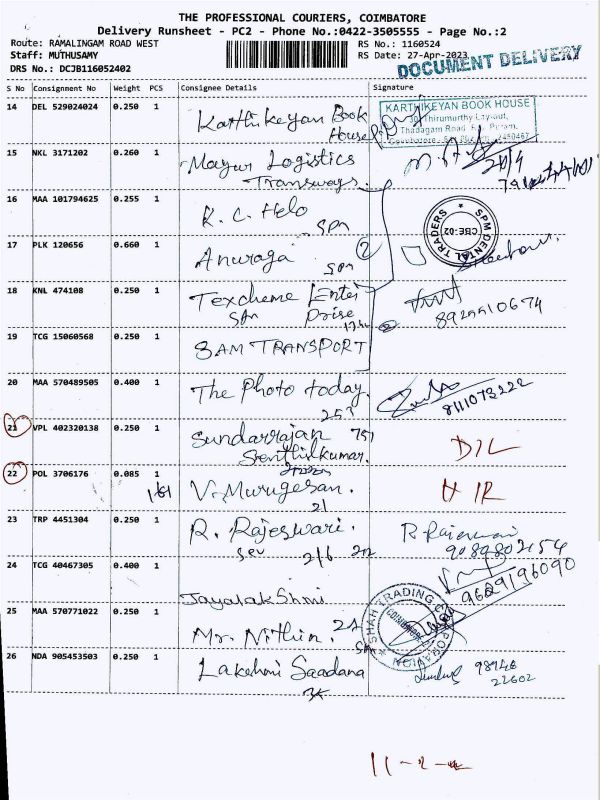 THE PROFESSIONAL COURIERS, COIMBATORE
Delivery Runsheet - PC2 - Phone No.:0422-3505555 - Page No.:2
Route: RAMALINGAM ROAD WEST
Staff: MUTHUSAMY
DRS No.: DCJB116052402
RS No.: 1160524
RS Date: 27-Apr-2023
DOCUMENT DELIVERY
S No Consignment No Weight PCS Consignee Details Signature
14 DEL 529024024 0.250 1 Karthikeyan Book
House
KARTHIKEYAN BOOK HOUSE
Thirumurthy Lay-out,
Thadagam Road
15 NKL 3171202 0.260 1 Mayur Logistics
Transways.
16 MAA 101794625 0.255 1 R. C. Helo
SPM
SPM DENTAL TRADERS
CBE-02
17 PLK 120656 0.660 1 Anuraga 2
SPM
18 KNL 474108 0.250 1 Texcheme Enter
Prise
8925510674
19 TCG 15060568 0.250 1 SAM TRANSPORT
20 MAA 570489505 0.400 1 The Photo today.
253
8111073222
21 VPL 402320138 0.250 1 Sundarrajan 751
Senthilkumar.
D/L
22 POL 3706176 0.085 1 V. Murugesan.
21
23 TRP 4451304 0.250 1 R. Rajeswari.
2/6
R Rajeswari
24 TCG 40467305 0.400 1 Jayalakshmi
9629196090
25 MAA 570771022 0.250 1 Mr. Nithin.
SHAH TRADING CORPORATION
26 NDA 905453503 0.250 1 Lakshmi Saadana
98946
22602